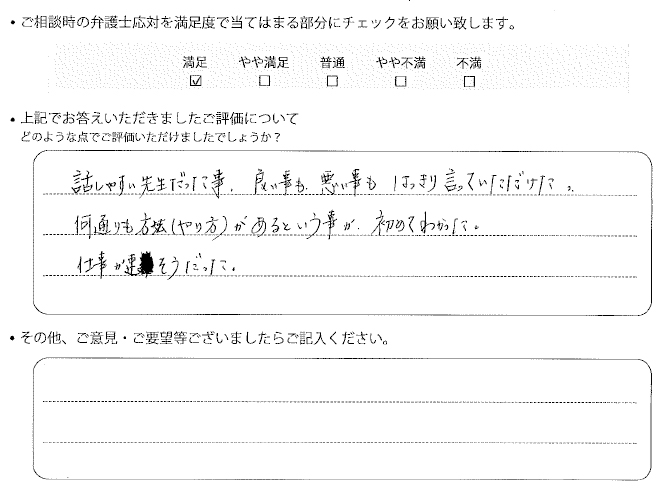 • ご相談時の弁護士応対を満足度で当てはまる部分にチェックをお願い致します。
満足 やや満足 普通 やや不満 不満
☑ ☐ ☐ ☐ ☐
• 上記でお答えいただきましたご評価について
どのような点でご評価いただけましたでしょうか？
話しやすい先生だった事、良い事も、悪い事も はっきり言っていただけた。
何通りも方法(やり方)があるという事が、初めてわかった。
仕事が そうだった。
• その他、ご意見・ご要望等ございましたらご記入ください。